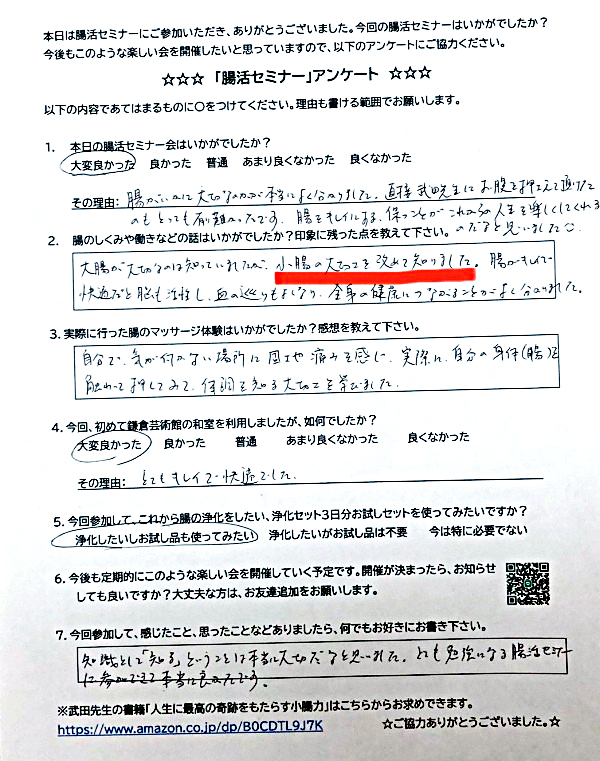 本日は腸活セミナーにご参加いただき、ありがとうございました。今回の腸活セミナーはいかがでしたか？
今後もこのような楽しい会を開催したいと思っていますので、以下のアンケートにご協力ください。
☆☆☆ 「腸活セミナー」アンケート ☆☆☆
以下の内容であてはまるものに○をつけてください。理由も書ける範囲でお願いします。
1. 本日の腸活セミナー会はいかがでしたか？
大変良かった 良かった 普通 あまり良くなかった 良くなかった
その理由: 腸がいかに大切なのかが本当によく分かりました。直接武田先生にお腹を押さえて頂けた
のもとっても有難かったです。腸をキレイにする、保つことがこれからの人生を楽しくしてくれる
のだなと思いました
2. 腸のしくみや働きなどの話はいかがでしたか？印象に残った点を教えて下さい。
大腸が大切なのは知っていましたが、小腸の大切さを改めて知りました。腸がキレイで
快適だと脳も活性し、血の巡りもよくなり、全身の健康につながることがよく分りました。
3. 実際に行った腸のマッサージ体験はいかがでしたか？感想を教えて下さい。
自分で、気が付かない場所に固さや痛みを感じ、実際に、自分の身体(腸)を
触わって押してみて、体調を知る大切さを学びました。
4. 今回、初めて鎌倉芸術館の和室を利用しましたが、如何でしたか？
大変良かった 良かった 普通 あまり良くなかった 良くなかった
その理由: とてもキレイで快適でした。
5. 今回参加して、これから腸の浄化をしたい、浄化セット3日分お試しセットを使ってみたいですか？
浄化したいしお試し品も使ってみたい 浄化したいがお試し品は不要 今は特に必要でない
6. 今後も定期的にこのような楽しい会を開催していく予定です。開催が決まったら、お知らせ
しても良いですか？大丈夫な方は、お友達追加をお願いします。
7. 今回参加して、感じたこと、思ったことなどありましたら、何でもお好きにお書き下さい。
知識として「知る」ということは本当に大切だなと思いました。とても勉強になる腸活セミナー
に参加できて本当に良かったです。
※武田先生の書籍「人生に最高の奇跡をもたらす小腸力」はこちらからお求めできます。
https://www.amazon.co.jp/dp/B0CDTL9J7K ☆ご協力ありがとうございました。☆